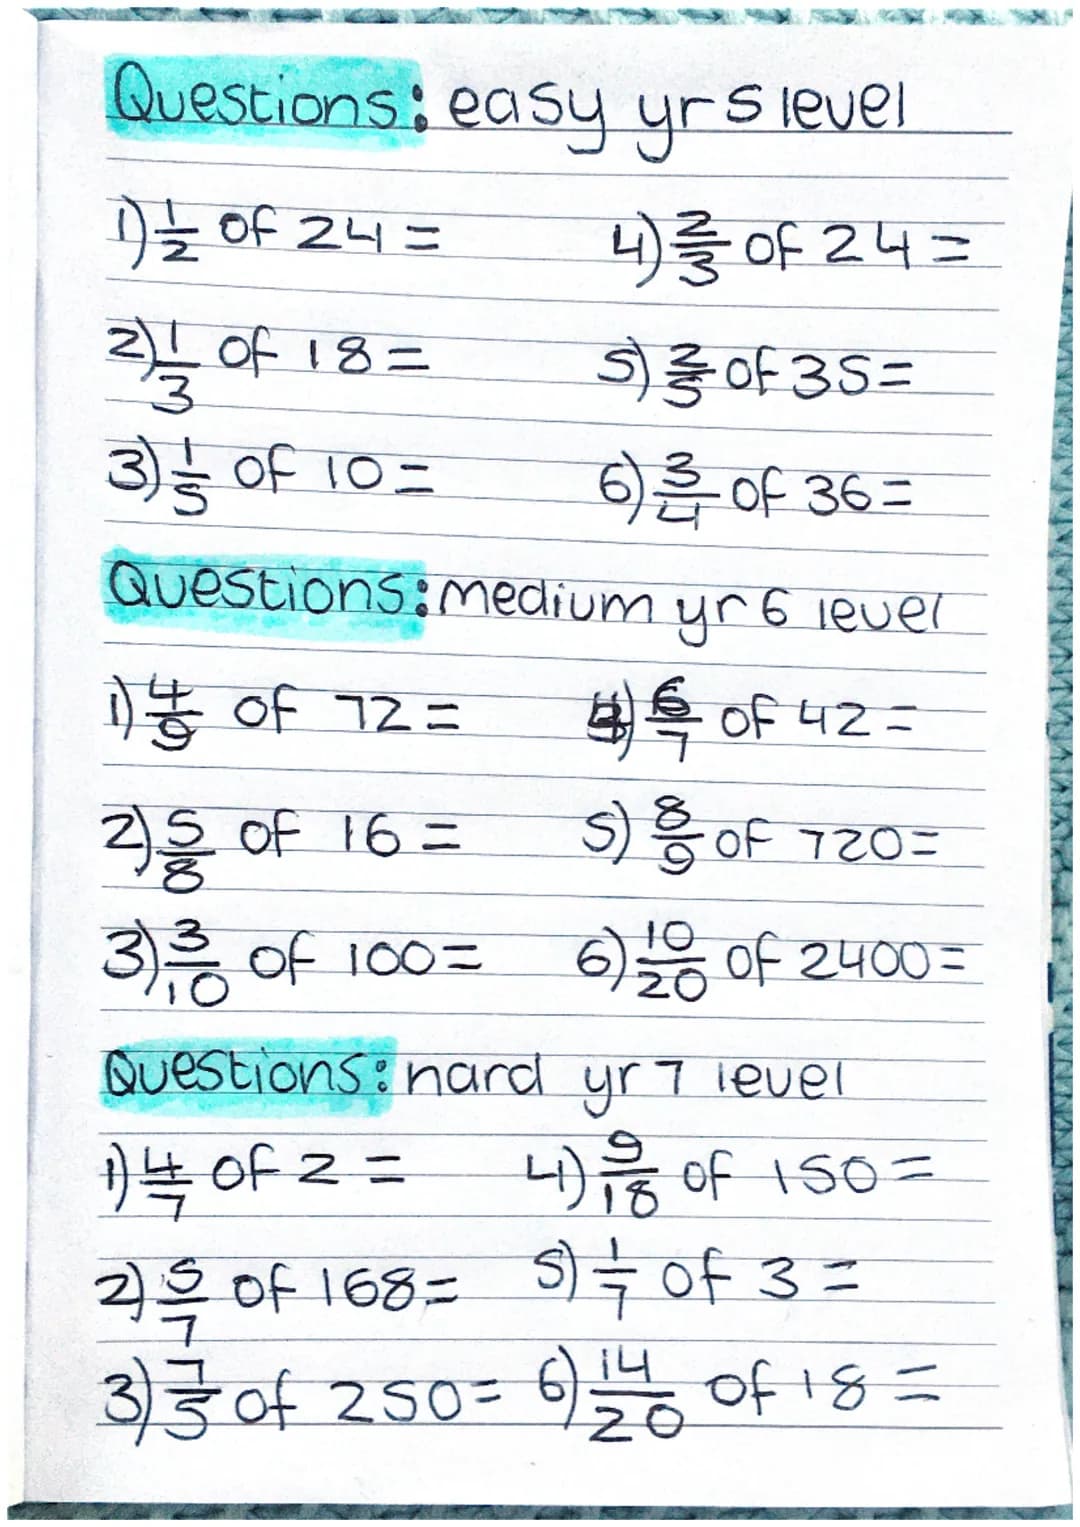 Questions: easy yr 5 level
1) 1/2 of 24 = 4) 2/3 of 24 =
2) 1/3 of 18 = 5) 2/5 of 35 =
3) 1/5 of 10 = 6) 3/4 of 36 =
Questions: medium yr 6 level
1) 4/9 of 72 = 4) 6/7 of 42 =
2) 5/8 of 16 = 5) 8/9 of 720 =
3) 3/10 of 100 = 6) 10/20 of 2400 =
Questions: hard yr 7 level
1) 4/7 of 2 = 4) 9/18 of 150 =
2) 5/7 of 168 = 5) 1/7 of 3 =
3) 7/5 of 250 = 6) 14/20 of 18 =